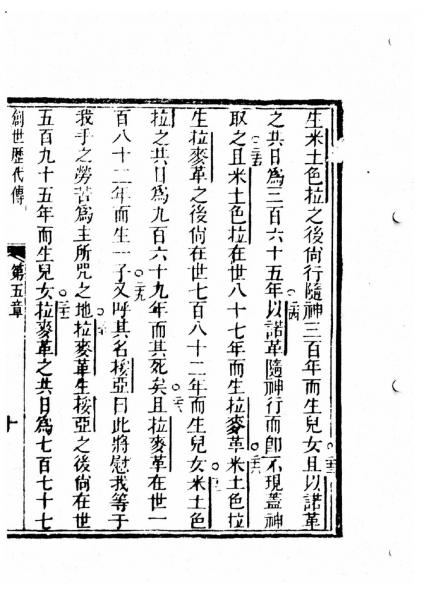 生米土色拉之後尙行隨神三百年而生兒女且以諾革
之共日爲三百六十五年以諾革隨神行而卽不現蓋神
取之且米土色拉在世八十七年而生拉麥革米土色拉
生拉麥革之後尙在世七百八十二年而生兒女米土色
拉之共日爲九百六十九年而其死矣且拉麥革在世一
百八十二年而生一子又呼其名挼亞曰此將慰我等于
我手之勞苦爲主所咒之地拉麥革生挼亞之後尙在世
五百九十五年而生兒女拉麥革之共日爲七百七十七
創世歷代傳
第五章
十